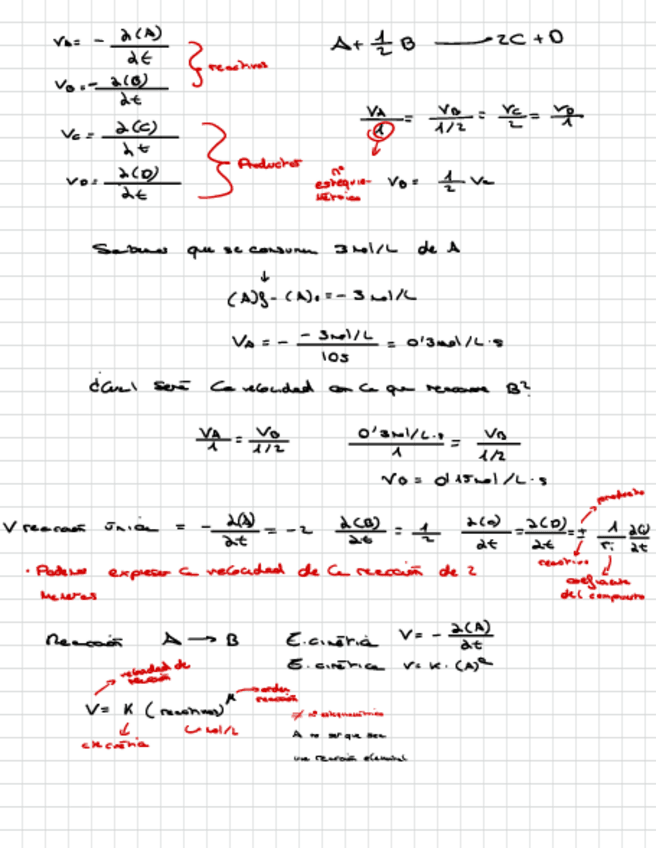 V_A = - ∂(A)/∂t
V_B = - ∂(B)/∂t } reactivos
V_C = ∂(C)/∂t
V_D = ∂(D)/∂t } Productos
A + 1/2 B ——— 2C + D
V_A/1 = V_B/1/2 = V_C/2 = V_D/1
nº estequiométrico
V_B = 1/2 V_A
Sabemos que se consumen 3 mol/L de A
↓
(A)f - (A)₀ = - 3 mol/L
V_A = - -3mol/L / 10s = 0'3mol/L·s
¿Cuál será la velocidad con la que reacciona B?
V_A/1 = V_B/1/2    0'3mol/L·s/1 = V_B/1/2
V_B = 0'15mol/L·s
V reacción única = - ∂(A)/∂t = -2 ∂(B)/∂t = 1/2 ∂(C)/∂t = ∂(D)/∂t = ± 1/ri ∂()/∂t
producto
reactivo
coeficiente del compuesto
· Podemos expresar la velocidad de la reacción de 2
maneras
Reacción A → B    E. cinética V = - ∂(A)/∂t
E. cinética V = K · (A)ᵅ
velocidad de reacción
V = K (reactivos)ⁿ → orden reacción
cte cinética
mol/L
≠ nº estequiométrico
A no ser que sea
una reacción elemental